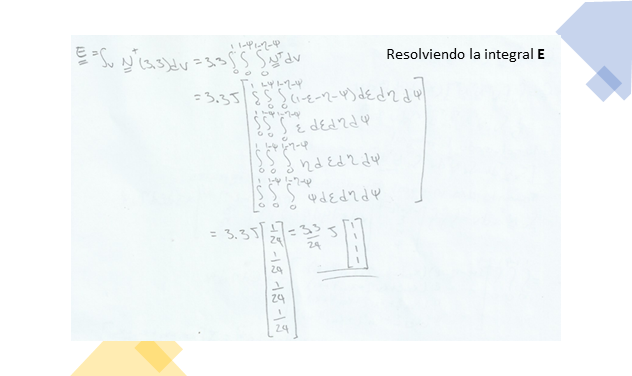 Resolviendo la integral E
E = ∫v N^T (3.3) dv = 3.3 ∫₀¹ ∫₀^(1-ψ) ∫₀^(1-η-ψ) N^T dv
= 3.3J [ ∫₀¹ ∫₀^(1-ψ) ∫₀^(1-η-ψ) (1-ε-η-ψ) dε dη dψ
∫₀¹ ∫₀^(1-ψ) ∫₀^(1-η-ψ) ε dε dη dψ
∫₀¹ ∫₀^(1-ψ) ∫₀^(1-η-ψ) η dε dη dψ
∫₀¹ ∫₀^(1-ψ) ∫₀^(1-η-ψ) ψ dε dη dψ ]
= 3.3J [ 1/24 1/24 1/24 1/24 ] = 3.3/24 J [ 1 1 1 1 ]